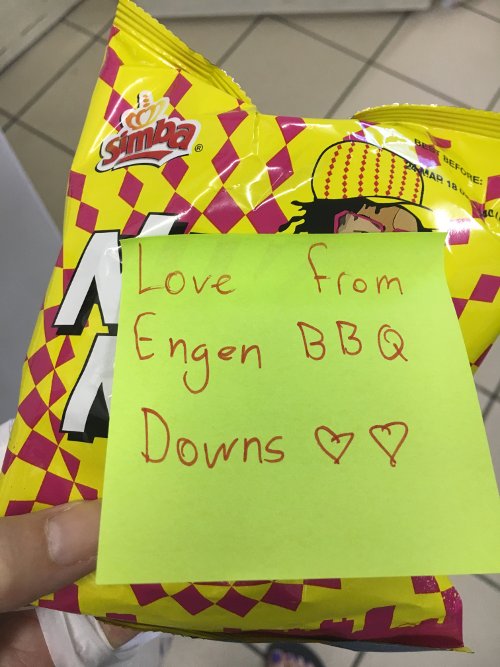 Simba®
BEST BEFORE:
24 MAR 18
Love from
Engen BBQ
Downs ♡♡